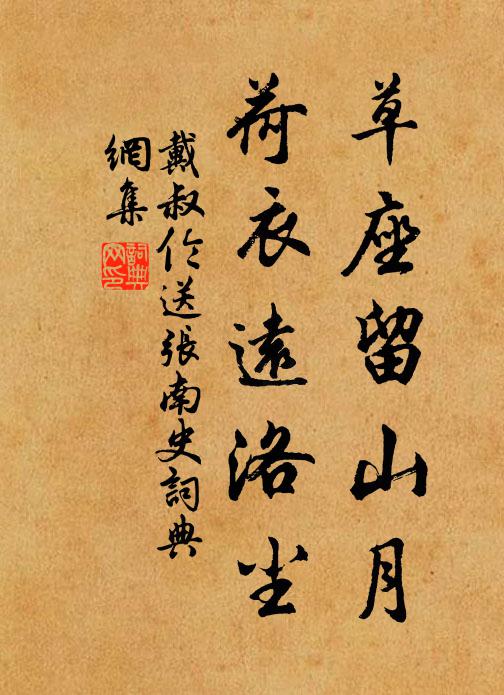 草座留山月
荷衣遠洛尘
戴叔伦送張南史詞典
網集
詞典
网印